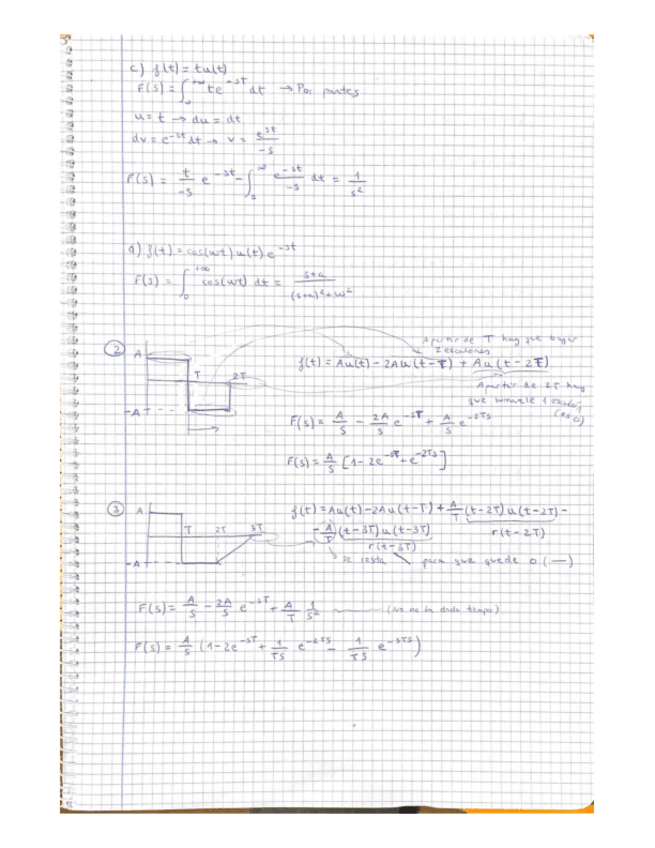 c) f(t) = tu(t)
F(s) = ∫₀^{+∞} te^{-st} dt → Por partes
u = t → du = dt
dv = e^{-st} dt → v = e^{st}/-s
F(s) = t/-s e^{-st} - ∫₀^∞ e^{-st}/-s dt = 1/s²
d) f(t) = cos(wt) u(t) e^{-st}
F(s) = ∫₀^{+∞} cos(wt) dt = s+a/(s+a)²+w²
Apartir de T hay que bajar
2 escalones
② A T 2T -A
f(t) = Au(t) - 2Au(t-T) + Au(t-2T)
Apartir de 2T hay
que sumarle 1 escalón
(es 0)
F(s) = A/s - 2A/s e^{-sT} + A/s e^{-2Ts}
F(s) = A/s [1-2e^{-sT}+e^{-2Ts}]
③ A T 2T 3T -A
f(t) = Au(t) - 2Au(t-T) + A/T (t-2T) u(t-2T) -
r(t-2T)
- A/T (t-3T) u(t-3T)
r(t-3T)
se resta para que quede 0 (—)
F(s) = A/s - 2A/s e^{-sT} + A/T 1/s² (No me ha dado tiempo)
F(s) = A/s (1-2e^{-sT} + 1/Ts e^{-2Ts} - 1/Ts e^{-3Ts})